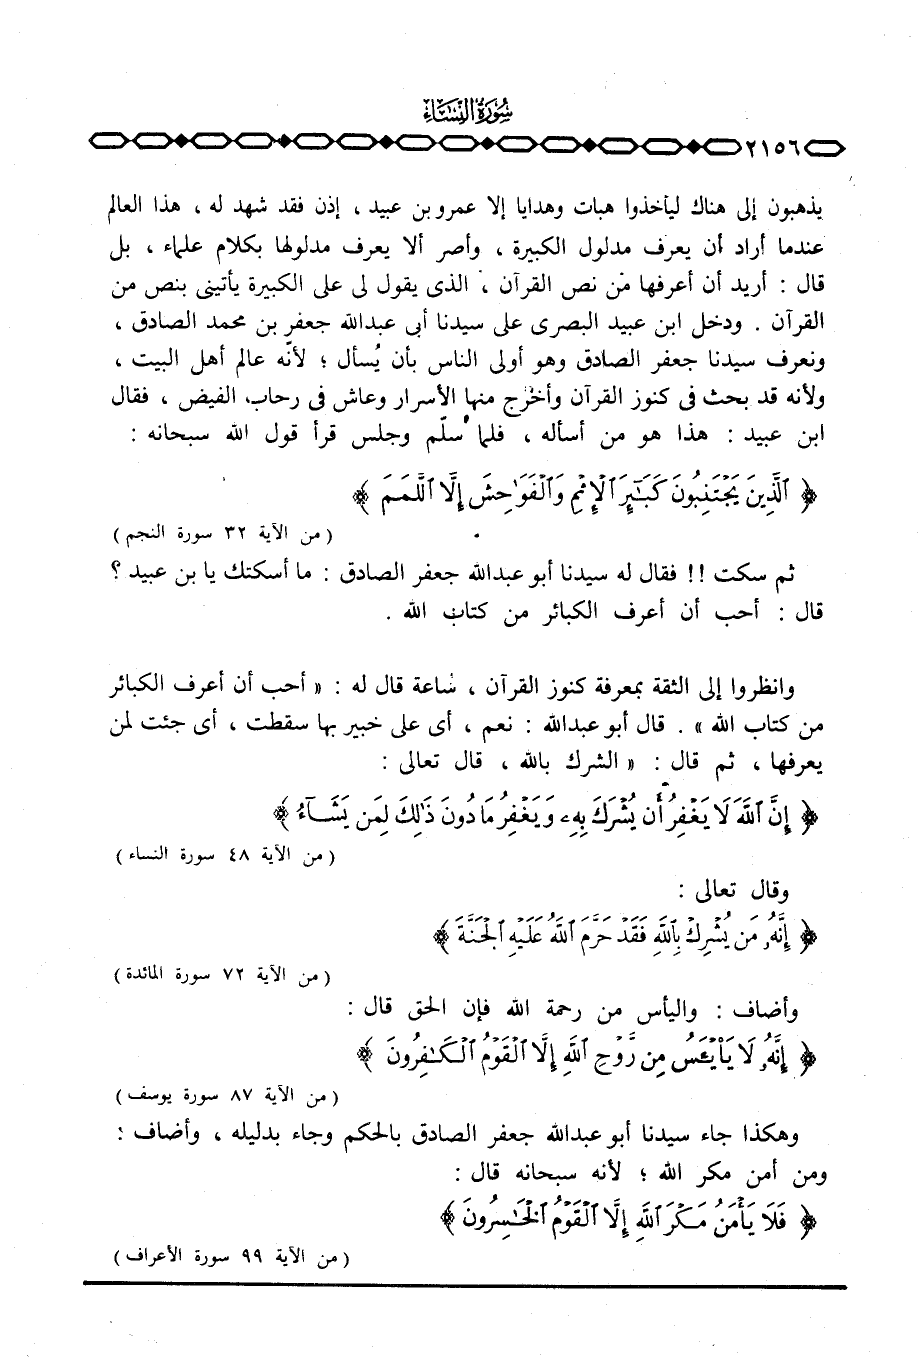 سورة النساء
٢١٥٦
يذهبون إلى هناك ليأخذوا هبات وهدايا إلا عمرو بن عبيد ، إذن فقد شهد له ، هذا العالم
عندما أراد أن يعرف مدلول الكبيرة ، وأصر ألا يعرف مدلولها بكلام علماء ، بل
قال : أريد أن أعرفها من نص القرآن ، الذى يقول لى على الكبيرة يأتينى بنص من
القرآن . ودخل ابن عبيد البصرى على سيدنا أبى عبدالله جعفر بن محمد الصادق ،
ونعرف سيدنا جعفر الصادق وهو أولى الناس بأن يُسأل ؛ لأنّه عالم أهل البيت ،
ولأنه قد بحث فى كنوز القرآن وأخرج منها الأسرار وعاش فى رحاب الفيض ، فقال
ابن عبيد : هذا هو من أسأله ، فلما سلّم وجلس قرأ قول الله سبحانه :
﴿ ٱلَّذِينَ يَجْتَنِبُونَ كَبَٰٓئِرَ ٱلْإِثْمِ وَٱلْفَوَٰحِشَ إِلَّا ٱللَّمَمَ ﴾
( من الآية ٣٢ سورة النجم )
ثم سكت !! فقال له سيدنا أبو عبدالله جعفر الصادق : ما أسكتك يا بن عبيد ؟
قال : أحب أن أعرف الكبائر من كتاب الله .
وانظروا إلى الثقة بمعرفة كنوز القرآن ، ساعة قال له : « أحب أن أعرف الكبائر
من كتاب الله » . قال أبو عبدالله : نعم ، أى على خبير بها سقطت ، أى جئت لمن
يعرفها ، ثم قال : « الشرك بالله ، قال تعالى :
﴿ إِنَّ ٱللَّهَ لَا يَغْفِرُ أَن يُشْرَكَ بِهِۦ وَيَغْفِرُ مَا دُونَ ذَٰلِكَ لِمَن يَشَآءُ ﴾
( من الآية ٤٨ سورة النساء )
وقال تعالى :
﴿ إِنَّهُۥ مَن يُشْرِكْ بِٱللَّهِ فَقَدْ حَرَّمَ ٱللَّهُ عَلَيْهِ ٱلْجَنَّةَ ﴾
( من الآية ٧٢ سورة المائدة )
وأضاف : واليأس من رحمة الله فإن الحق قال :
﴿ إِنَّهُۥ لَا يَا۟يْـَٔسُ مِن رَّوْحِ ٱللَّهِ إِلَّا ٱلْقَوْمُ ٱلْكَٰفِرُونَ ﴾
( من الآية ٨٧ سورة يوسف )
وهكذا جاء سيدنا أبو عبدالله جعفر الصادق بالحكم وجاء بدليله ، وأضاف :
ومن أمن مكر الله ؛ لأنه سبحانه قال :
﴿ فَلَا يَأْمَنُ مَكْرَ ٱللَّهِ إِلَّا ٱلْقَوْمُ ٱلْخَٰسِرُونَ ﴾
( من الآية ٩٩ سورة الأعراف )